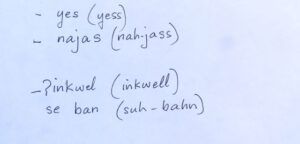 - yes (yess)
- najas (nah-jass)
- ?inkwel (inkwell)
se ban (suh-bahn)